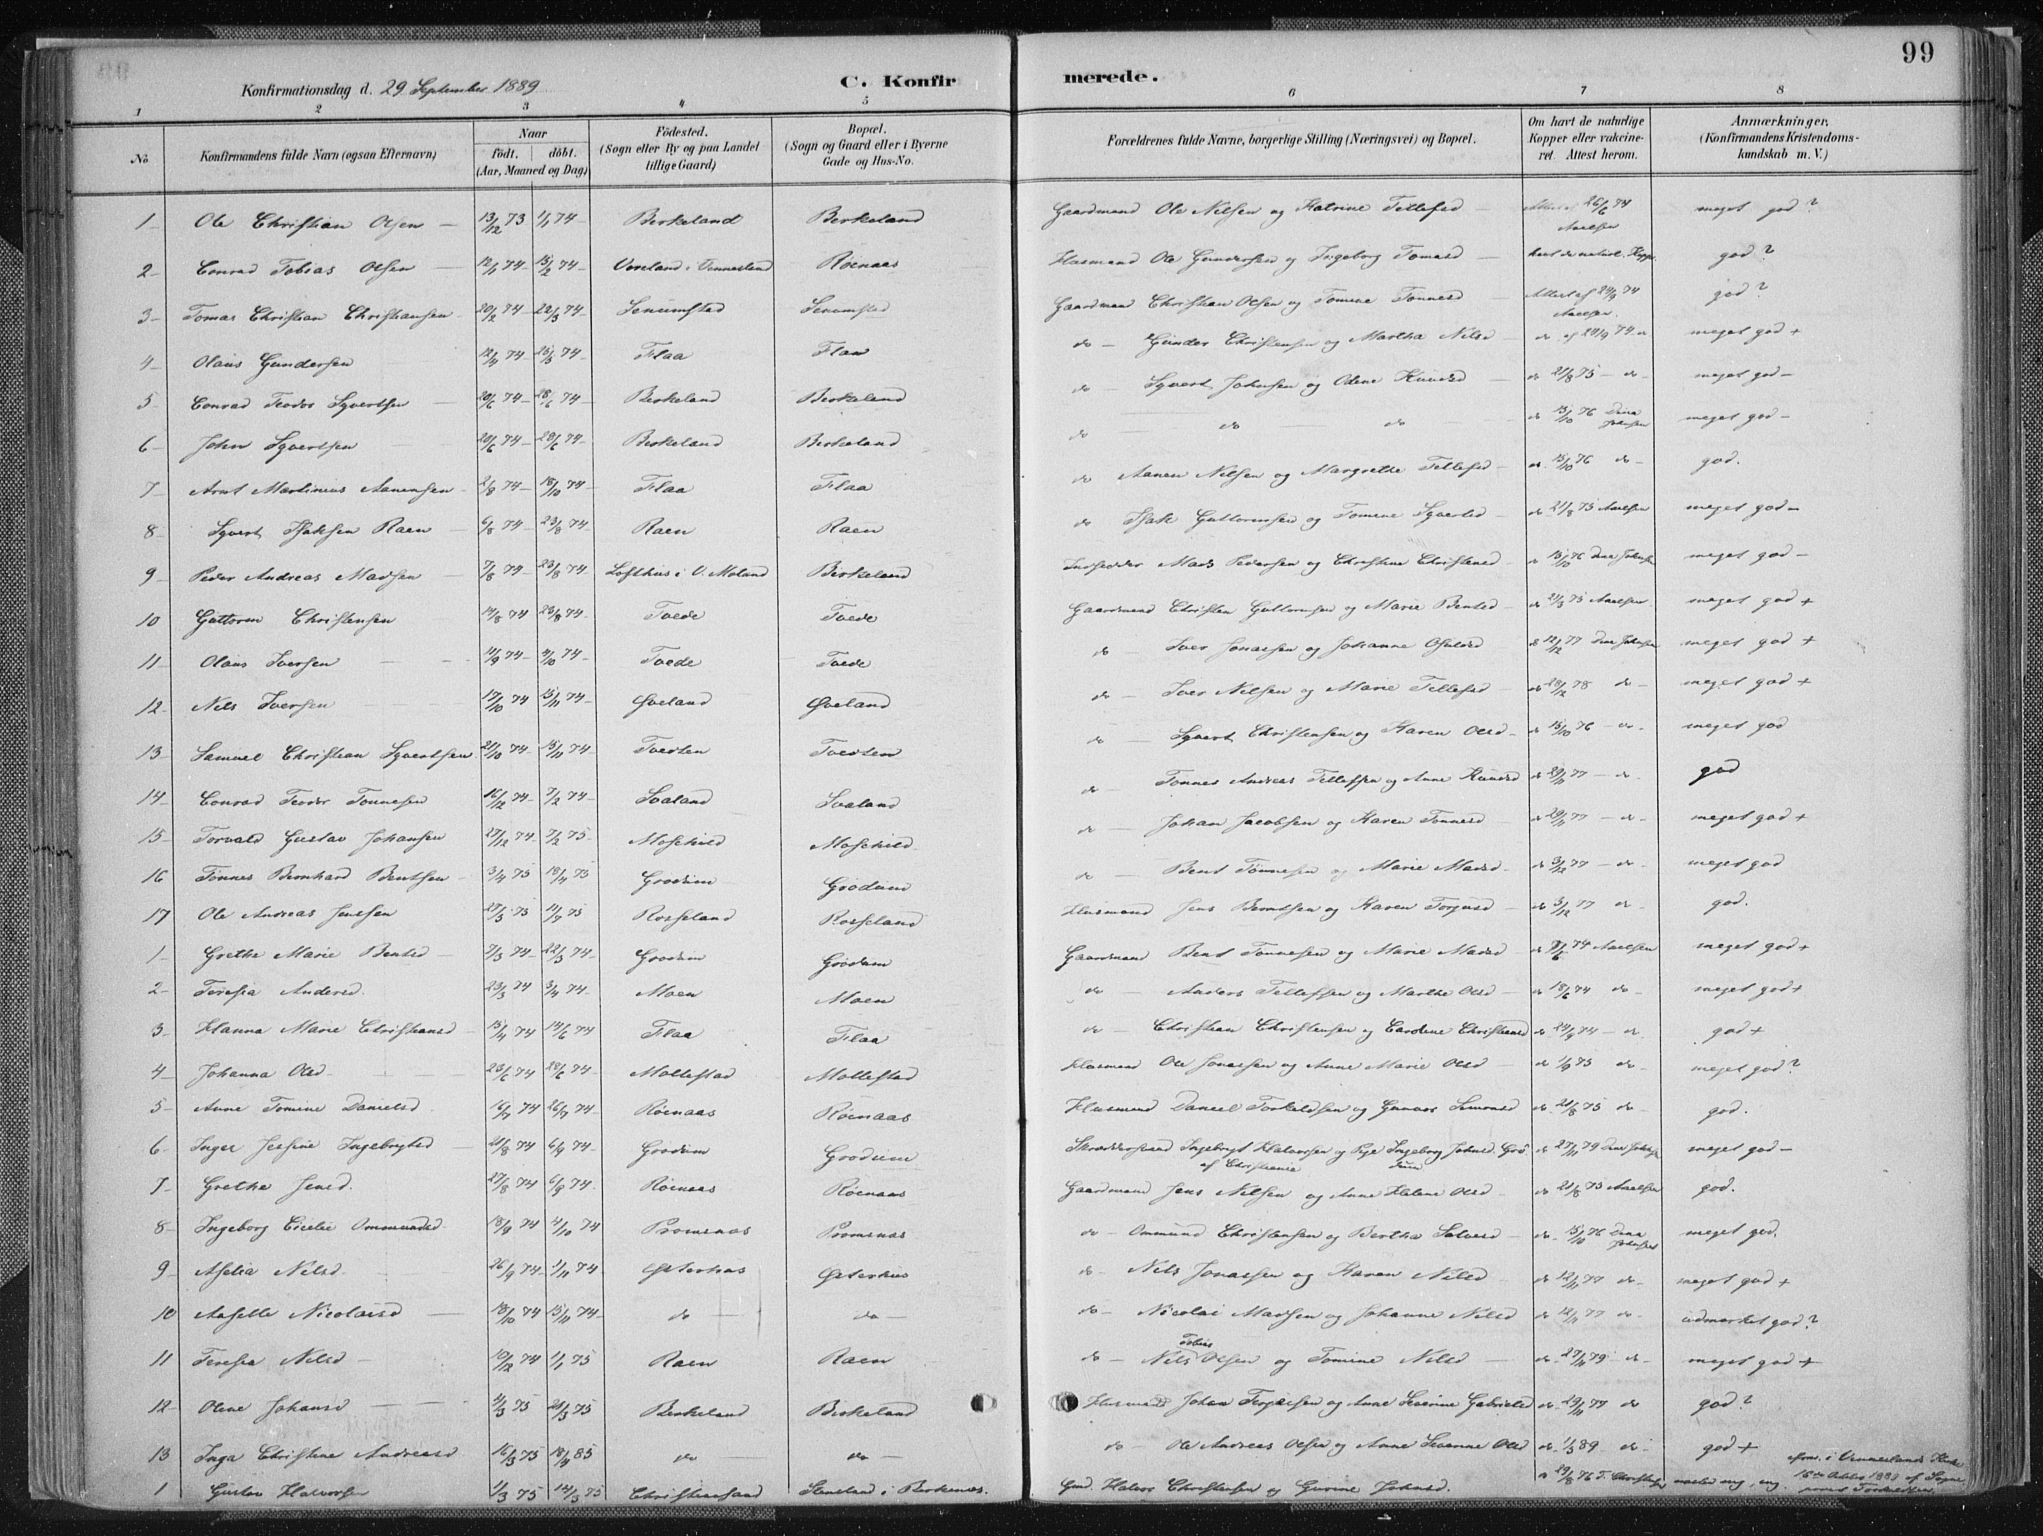 99
Konfirmationsdag d. 29 September 1889
C. Konfirmerede.
1 2 3 4 5 6 7 8
No
Konfirmandens fulde Navn (ogsaa Efternavn)
Naar
födt. döbt.
(Aar, Maaned og Dag)
Födested.
(Sogn eller By og paa Landet
tillige Gaard)
Bopæl.
(Sogn og Gaard eller i Byerne
Gade og Hus-No.
Forældrenes fulde Navne, borgerlige Stilling (Næringsvei) og Bopæl.
Om havt de naturlige
Kopper eller vakcine-
ret. Attest herom.
Anmærkninger,
(Konfirmandens Kristendoms-
kundskab m. V.)
1 Ole Christian Olsen 13/12 73 1/1 74 Birkeland Birkeland Gaardmand Ole Nilsen og Katrine Tellefsd Attest 26/6 74 Aaelsen meget god?
2 Conrad Tobias Olsen 12/1 74 15/2 74 Voreland i Vennesland Røenaas Husmand Ole Gundersen og Ingeborg Tomasd havt de naturl. Kopp. god?
3 Tomas Christian Christiansen 20/2 74 22/3 74 Senumstad Senumstad Gaardmand Christian Olsen og Tomine Tønnesd Attest af 24/9 74 Aaelsen god?
4 Olaus Gundersen 12/4 74 25/5 74 Flaa Flaa do Gunder Christensen og Martha Nilsd do af 24/9 74 do meget god +
5 Conrad Teodor Syvertsen 20/6 74 28/6 74 Birkeland Birkeland do Syvert Johnsen og Odene Knudsd do 21/8 75 do meget god -
6 John Syvertsen 20/6 74 28/6 74 Birkeland Birkeland do do do do 15/10 76 Dina Johnsen meget god -
7 Arnt Martinius Aanensen 2/8 74 18/10 74 Flaa Flaa do Aanen Nilsen og Margrethe Tellefsd do 15/10 76 do god.
8 Syvert Isaksen Raen 6/8 74 23/8 74 Raen Raen do Isak Guttormsen og Tomine Syvertsd do 21/8 75 Aaelsen meget god -
9 Peder Andreas Madsen 7/8 74 23/8 74 Lofthus i V. Moland Birkeland Inderster Mads Pedersen og Christine Christensd do 15/10 76 Dina Johnsen meget god -
10 Guttorm Christensen 14/8 74 23/8 74 Tvede Tvede Gaardmand Christen Guttormsen og Marie Bentsd do 21/3 75 Aaelsen meget god +
11 Olaus Iversen 11/9 74 4/10 74 Tvede Tvede do Iver Jonassen og Johanne Osuldsd do 12/12 77 Dina Johnsen meget god +
12 Nils Iversen 17/10 74 15/11 74 Øveland Øveland do Iver Nilsen og Marie Tellefsd do 28/12 78 do meget god +
13 Samuel Christian Syvertsen 21/10 74 15/11 74 Tveiten Tveiten do Syvert Christensen og Karen Olsd do 15/10 76 do meget god
14 Conrad Teodor Tønnesen 16/12 74 7/2 74 Svaland Svaland do Tønnes Andreas Tellefsen og Anne Knudsd do 29/11 77 do god
15 Torvald Gustav Johansen 27/12 74 7/2 75 Moseheid Moseheid do Johan Jacobsen og Karen Tønnesd do 29/11 77 do meget god +
16 Tønnes Bernhard Bentsen 3/4 75 18/4 75 Grødum Grødum do Bent Tønnesen og Marie Madsd do 3/12 77 do meget god
17 Ole Andreas Jensen 27/3 75 11/9 75 Rosseland Rosseland Husmand Jens Berntsen og Karen Torjusd do 3/12 77 do god.
1 Grethe Marie Bentsd 7/3 74 22/3 74 Grødum Grødum Gaardmand Bent Tønnesen og Marie Madsd do 7/6 74 Aaelsen meget god +
2 Teresia Andersd 23/3 74 3/4 74 Moen Moen do Anders Tellefsen og Marthe Olsd do 18/6 74 do meget god +
3 Hanna Marie Christiansd 15/4 74 14/6 74 Flaa Flaa do Christian Christensen og Caroline Christiansd do 24/9 74 do god +
4 Johanna Olsd 23/6 74 28/6 74 Mollestad Mollestad Husmand Ole Jonassen og Anne Marie Olsd do 1/9 75 do meget god?
5 Anne Tomine Danielsd 16/7 74 26/7 74 Røenaas Røenaas Husmand Daniel Torkeldsen og Gunvor Simonsd do 21/8 75 do god.
6 Inger Josfine Ingebrigtsd 21/8 74 6/9 74 Grødum Grødum Skræddersvend Ingebrigt Halvorsen af Christiania og Pige Ingeborg Johnsd. Grødum do 27/11 79 Dina Johnsen meget god -
7 Grethe Jensd 27/8 74 6/9 74 Røenaas Røenaas Gaardmand Jens Nilsen og Anne Helene Olsd do 21/8 75 Aaelsen god.
8 Ingeborg Cicelie Ommundsd 18/9 74 4/10 74 Væmesnes Væmesnes do Ommund Christensen og Bertha Salvesd do 15/10 76 Dina Johnsen meget god.
9 Aselia Nilsd 26/9 74 1/11 74 Østerhus Østerhus do Nils Jonassen og Karen Nilsd do 12/11 77 do meget god +
10 Aasille Nicolaisd 18/10 74 15/11 74 do do do Nicolai Madsen og Johanne Nilsd do 12/11 77 do udmærket god?
11 Teresia Nilsd 10/12 74 1/1 75 Raen Raen do Nils Tobias Olsen og Tomine Nilsd do 27/11 79 do meget god +
12 Oline Johansd 4/3 75 21/3 75 Birkeland Birkeland Husmand Johan Torjusen og Anne Severine Gabrielsd do 29/11 77 do god?
13 Inga Christine Andreasd 16/3 75 18/4 85 do do do Ole Andreas Olsen og Anne Severine Olsd do 1/3 89 do god +
1 Gustav Halvorsen 1/3 75 14/3 75 Christianssand Steneland i Birkenes. Gmd. Halvor Christensen og Gurine Johnsd. do 29/8 76 T. Christensen